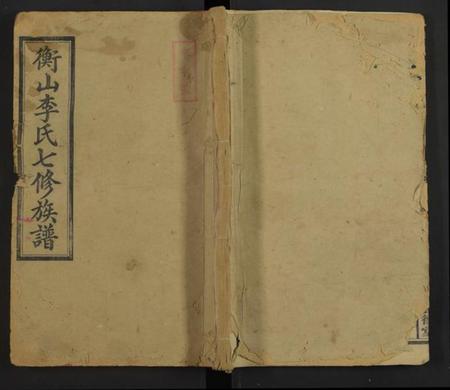 衡山李氏七修族譜